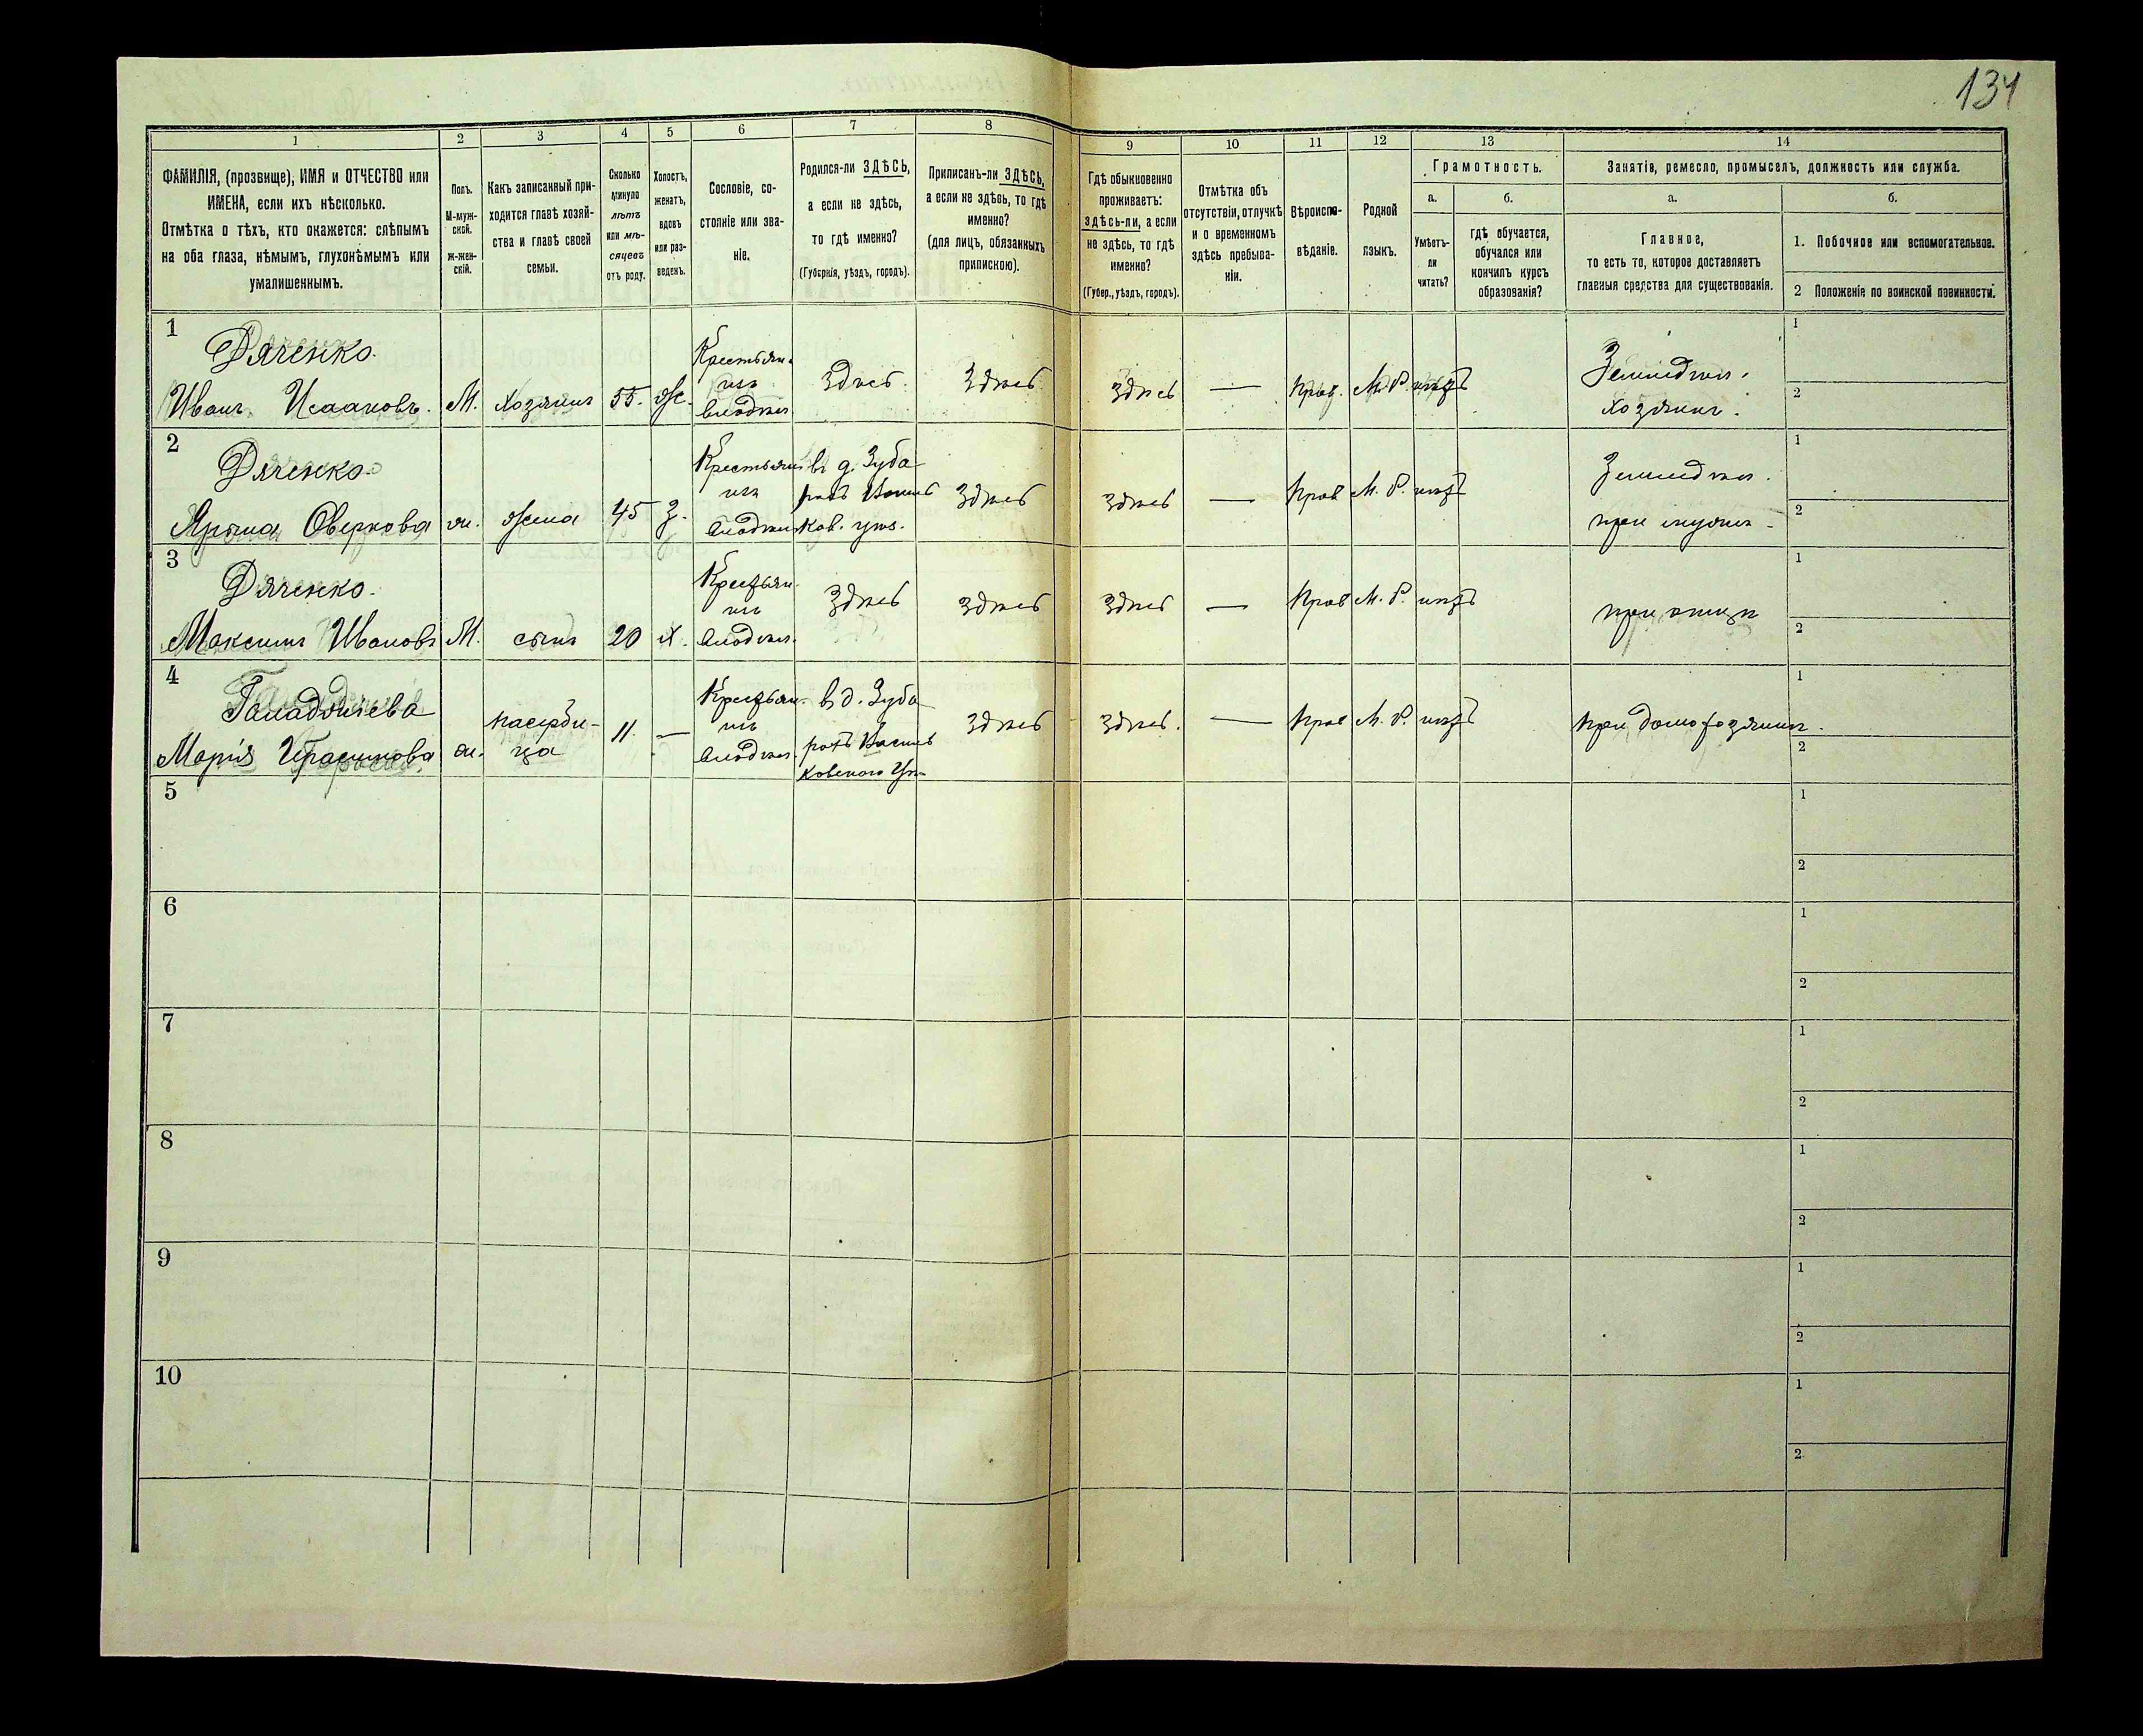 134
1 2 3 4 5 6 7 8 9 10 11 12 13 14
ФАМИЛІЯ, (прозвище), ИМЯ и ОТЧЕСТВО или
ИМЕНА, если ихъ нѣсколько.
Отмѣтка о тѣхъ, кто окажется: слѣпымъ
на оба глаза, нѣмымъ, глухонѣмымъ или
умалишеннымъ.
Полъ.
М-муж-
ской.
Ж-жен-
скій.
Какъ записанный при-
ходится главѣ хозяй-
ства и главѣ своей
семьи.
Сколько
минуло
лѣтъ
или мѣ-
сяцевъ
отъ роду.
Холостъ,
женатъ,
вдовъ
или раз-
веденъ.
Сословіе, со-
стояніе или зва-
ніе.
Родился-ли ЗДѢСЬ,
а если не здѣсь,
то гдѣ именно?
(Губернія, уѣздъ, городъ).
Приписанъ-ли ЗДѢСЬ,
а если не здѣсь, то гдѣ
именно?
(для лицъ, обязанныхъ
припискою).
Гдѣ обыкновенно
проживаетъ:
здѣсь-ли, а если
не здѣсь, то гдѣ
именно?
(Губер., уѣздъ, городъ).
Отмѣтка объ
отсутствіи, отлучкѣ
и о временномъ
здѣсь пребыва-
ніи.
Вѣроиспо-
вѣданіе.
Родной
языкъ.
Грамотность.
а.
Умѣетъ-
ли
читать?
б.
гдѣ обучается,
обучался или
кончилъ курсъ
образованія?
Занятіе, ремесло, промыселъ, должность или служба.
а.
Главное,
то есть то, которое доставляетъ
главныя средства для существованія.
б.
1. Побочное или вспомогательное.
2 Положеніе по воинской повинности.
1
Дяченко.
Иванъ Исааковъ. М. Хозяинъ 55. Ж.
Крестьян.
изъ
владѣл.
Здѣсь. Здѣсь Здѣсь — Прав. М. Р. нѣтъ
Земледѣл.
Хозяинъ.
1
2
2
Дяченко.
Оверкова ж. жена 45 З.
Крестьян
изъ
владѣл.
въ д. Зуба
ряхъ Васильков. уѣз.
Здѣсь Здѣсь — Прав М. Р. нѣтъ
Земледѣл.
при мужѣ.
1
2
3
Дяченко.
Максимъ Ивановъ М. сынъ 20 Х.
Крестьян.
изъ
владѣл.
Здѣсь Здѣсь Здѣсь — Прав М. Р. нѣтъ
при отцѣ
1
2
4
Марія ж.
падчери-
ца
11. —
Крестьян.
изъ
владѣл.
в д. Зуба
ряхъ Василь
ковского Уѣ.
Здѣсь Здѣсь. — Прав М. Р. нѣтъ
при домохозяинѣ.
1
2
5
1
2
6
1
2
7
1
2
8
1
2
9
1
2
10
1
2